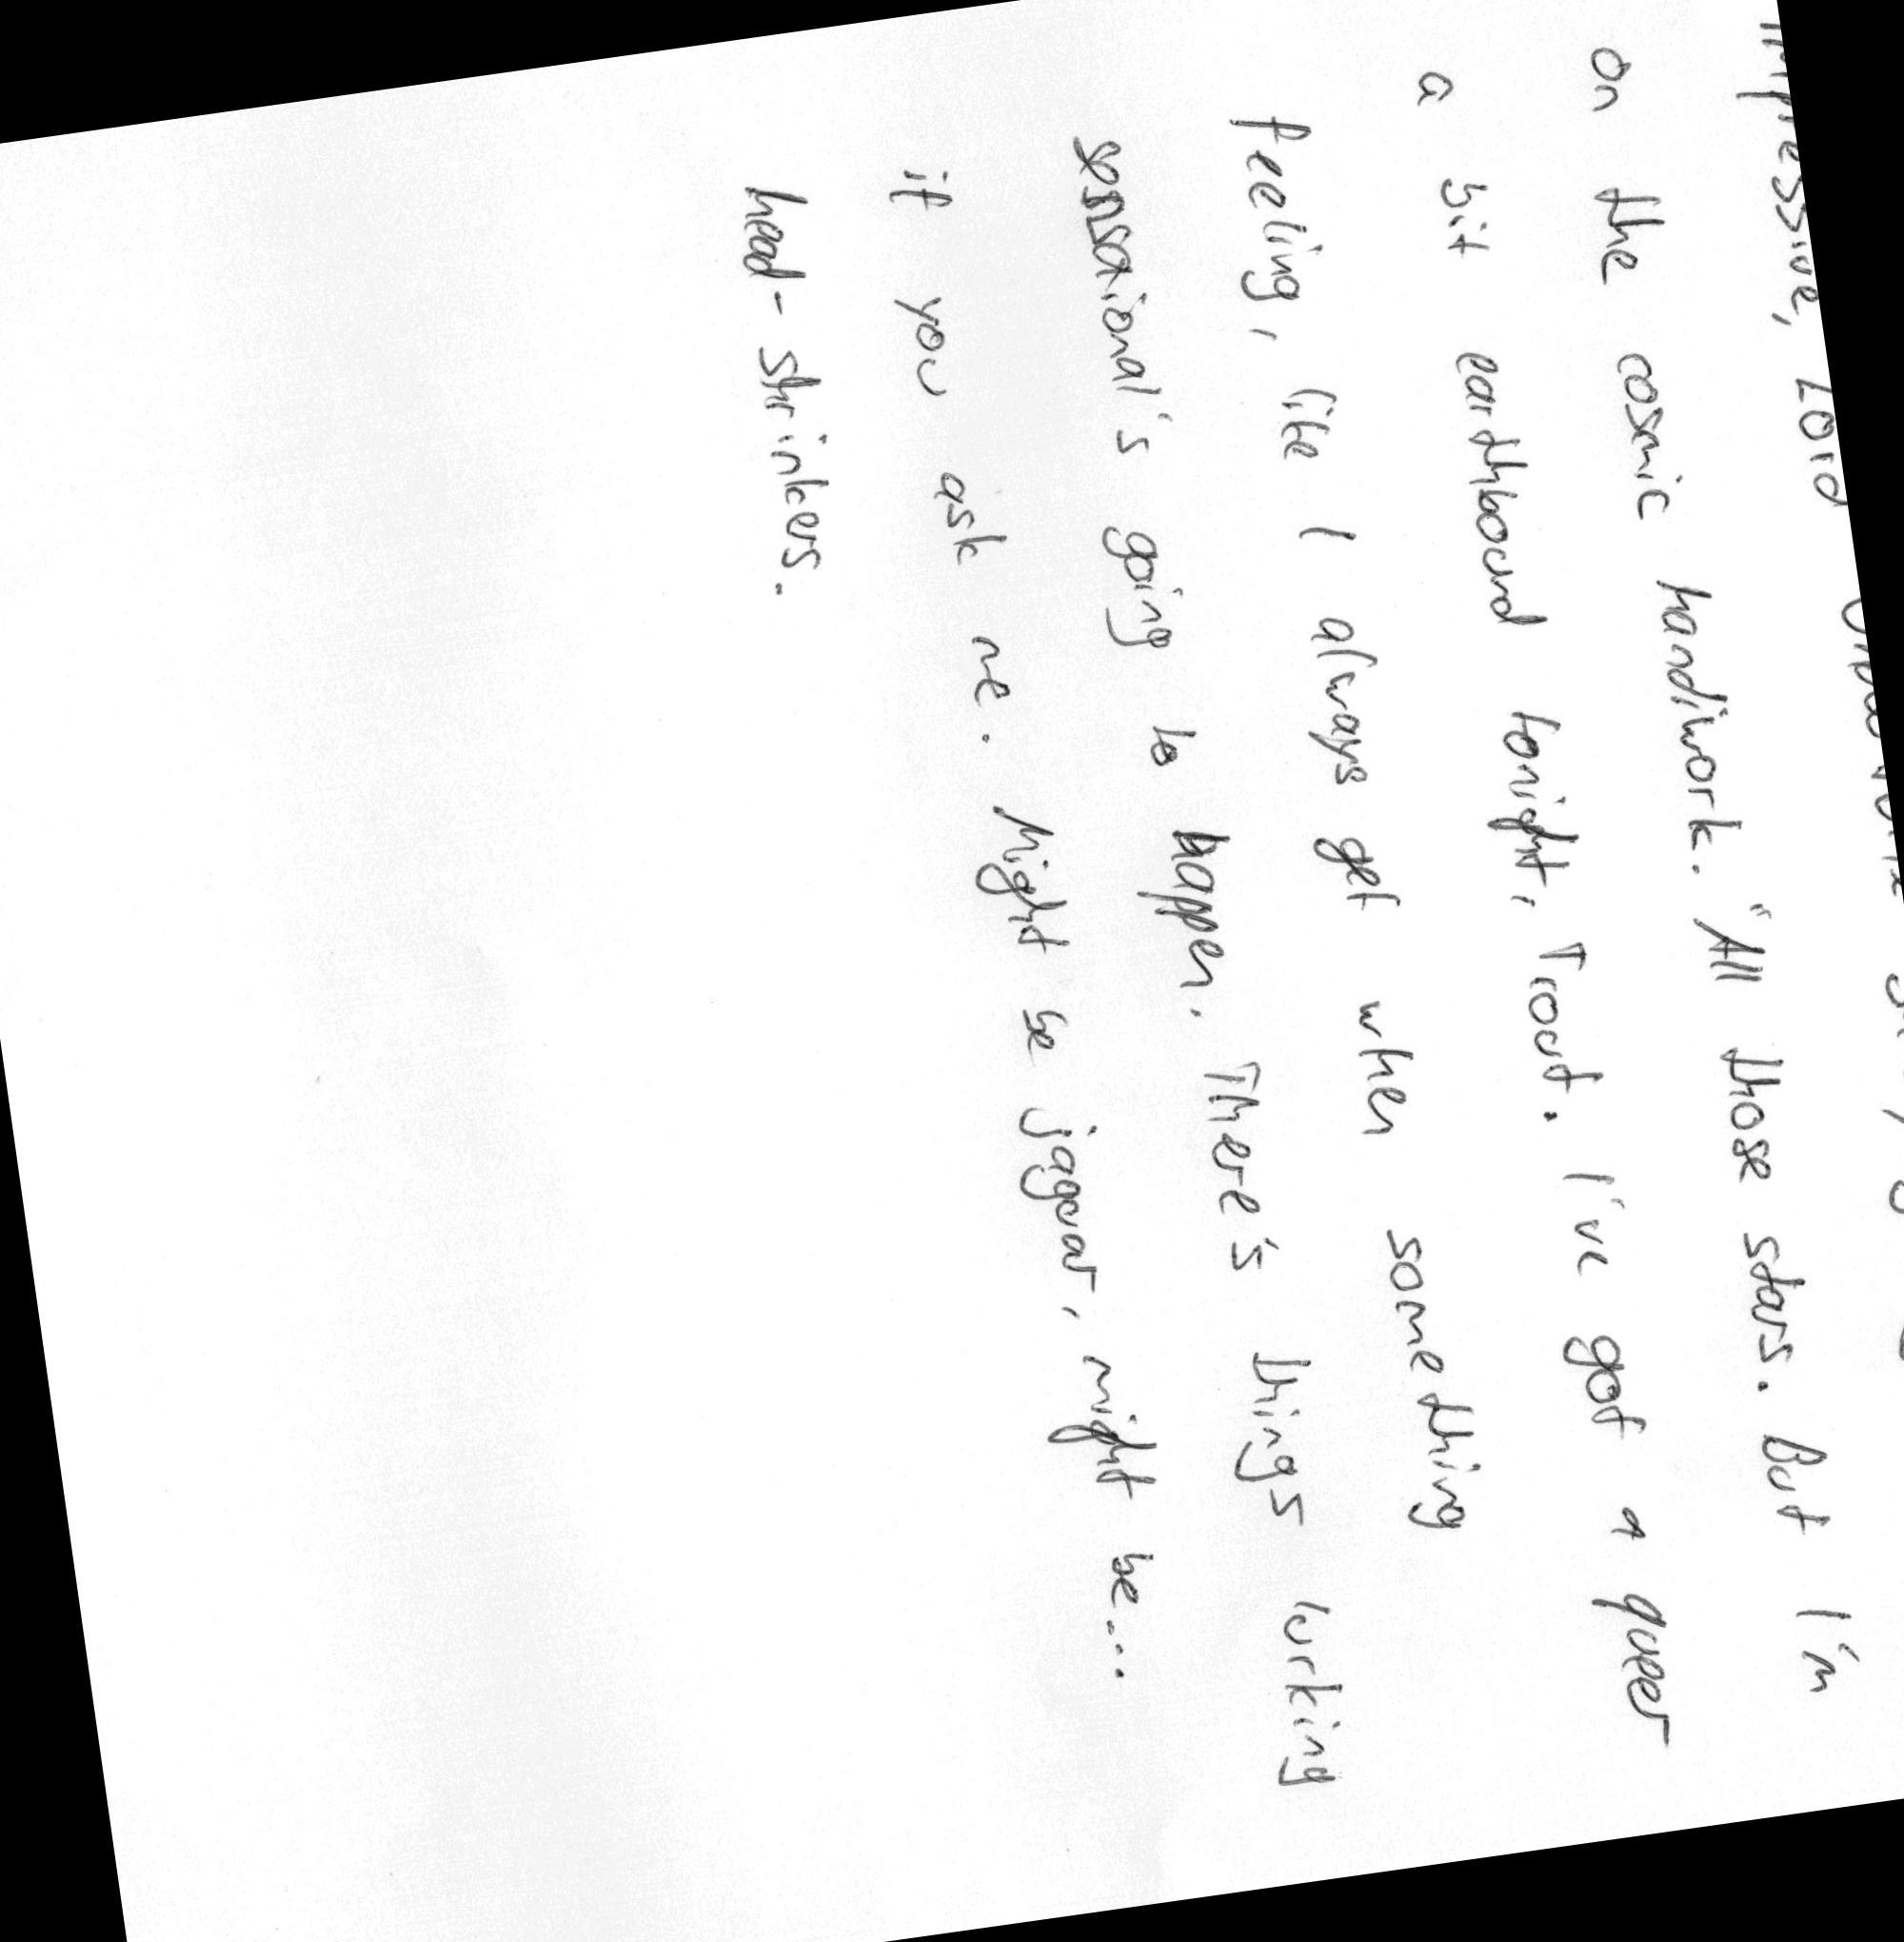 impressive, Lord
on the cosmic handiwork. "All those stars. But I'm
a bit earthbound tonight, Trout. I've got a queer
feeling, like I always get when something
sensaional's going to happen. There's things lurking
if you ask me. Might be jaguar, might be...
head-shrinkers.